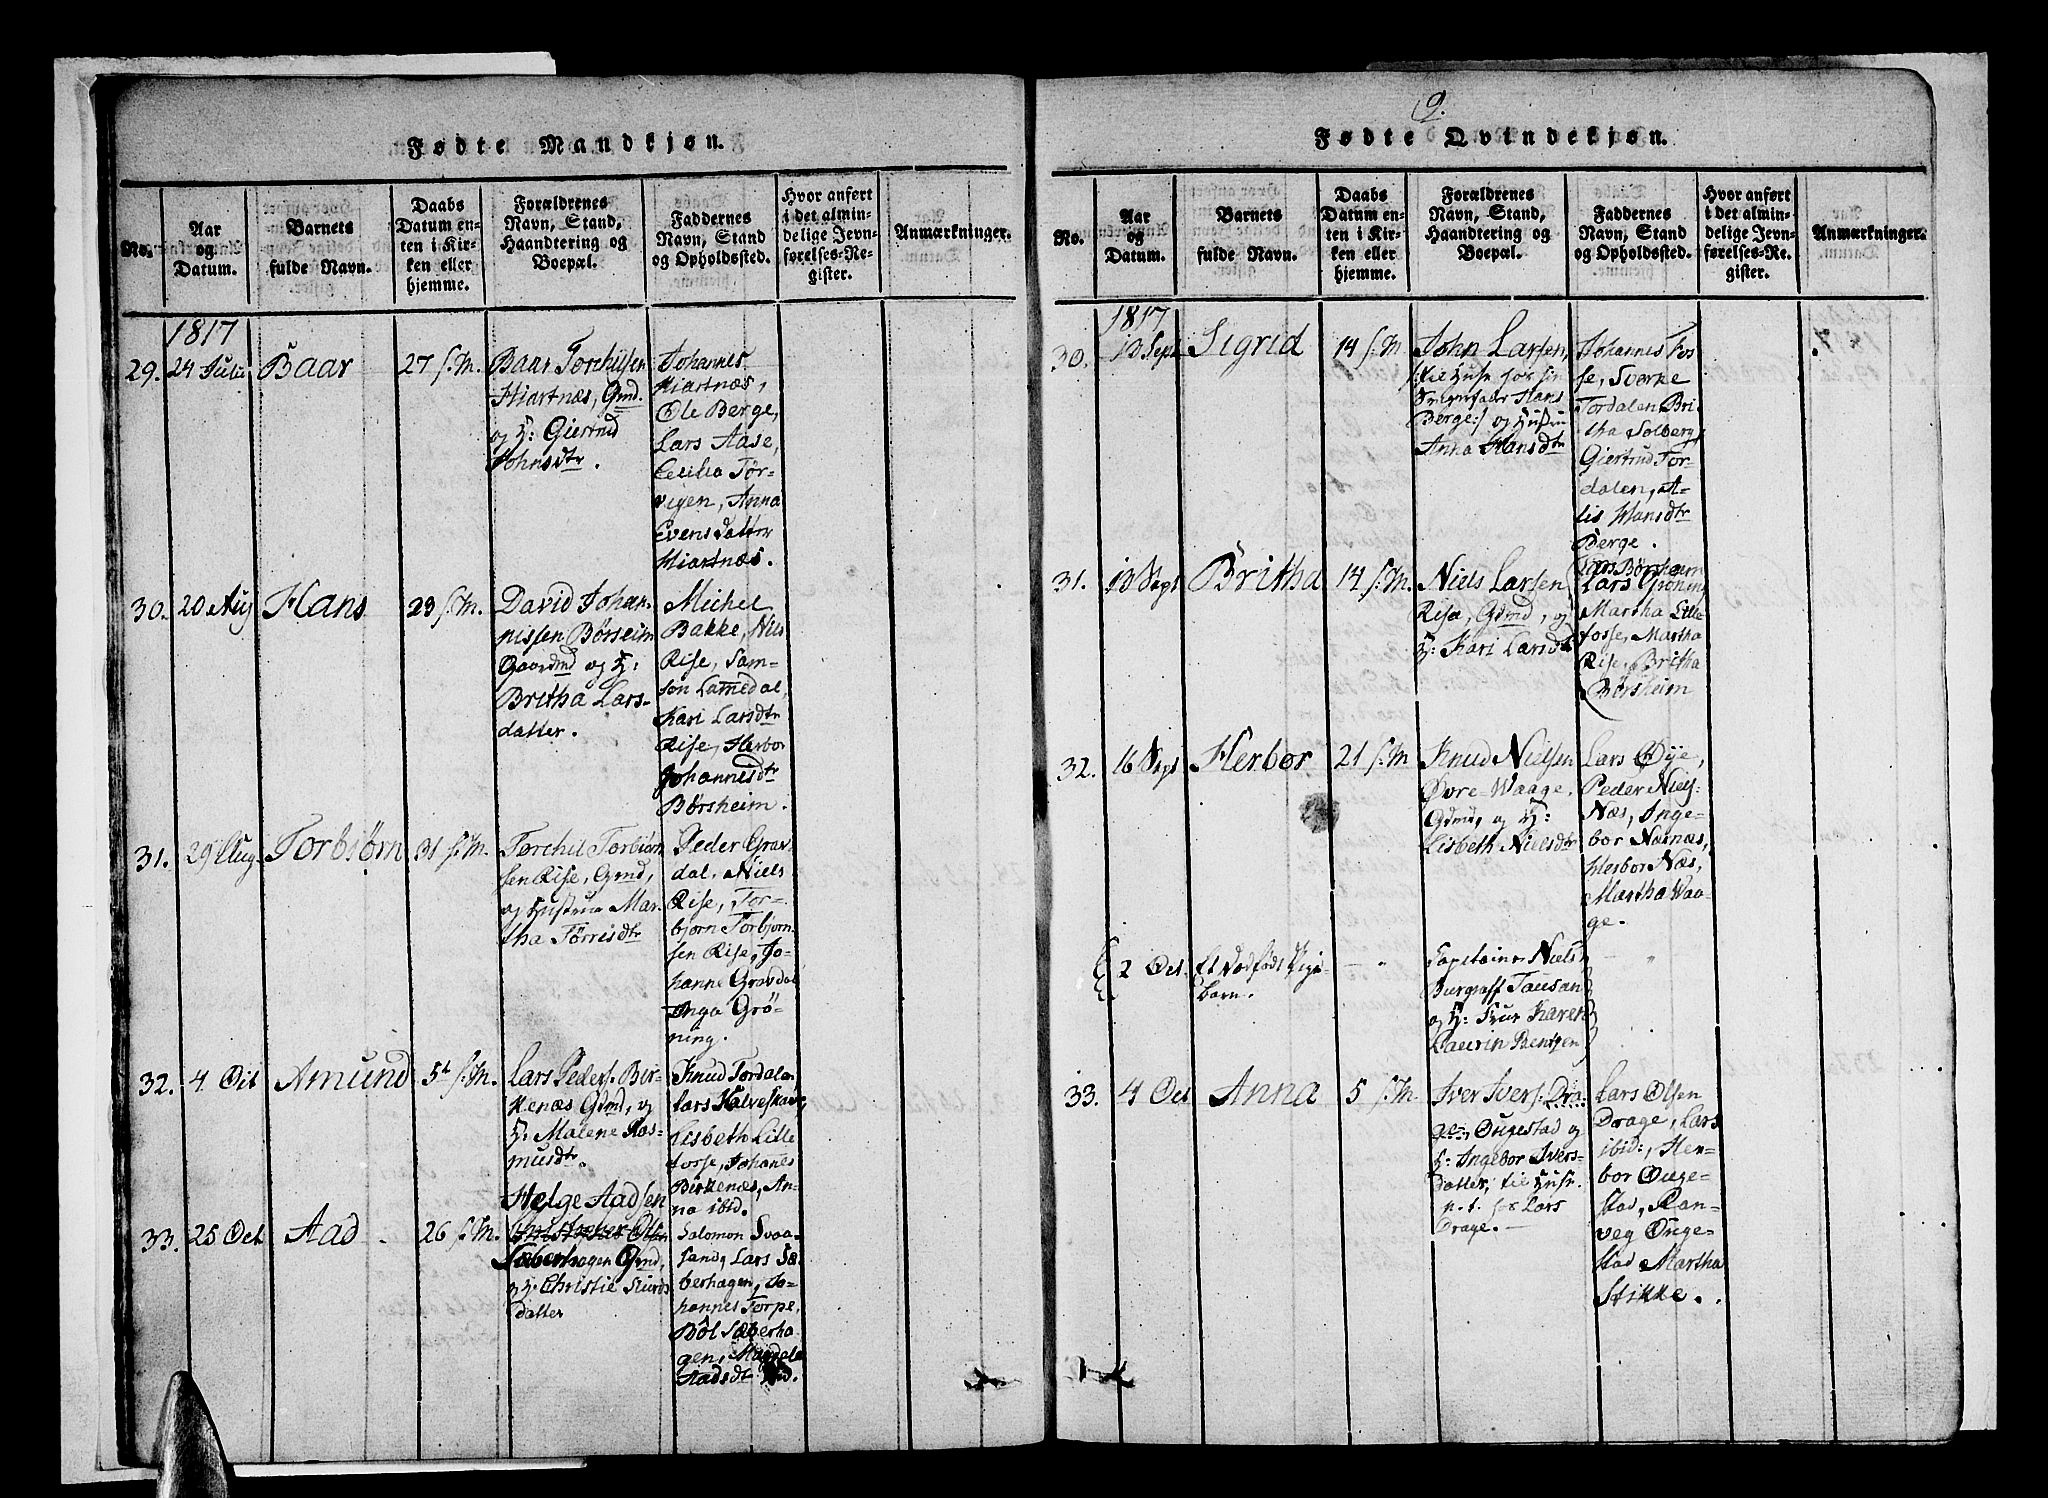 Fødte Mandkjøn.
No.
Aar
og
Datum.
Barnets
fulde Navn.
Daabs
Datum en-
ten i Kir-
ken eller
hjemme.
Forældrenes
Navn, Stand,
Haandtering og
Boepæl.
Faddernes
Navn, Stand
og Opholdssted.
Hvor anført
i det almin-
delige Jevn-
førelses-Re-
gister.
Anmærkninger.
1817
29.
24 Juli
Baar
27 s. M.
Baar Torchilsen
Hiartnæs, Gmd.
og H: Giertrud
Johnsdtr.
Johannes
Hiartnæs,
Ole Berge,
Lars Aase,
Cecilia Tør-
vigen, Anna
Evensdatter
Hiartnæs.
30.
20 Aug
Hans
23 s. M.
David Johan-
nissen Børseim
Gaardmd og H:
Britha Lars-
datter.
Michel
Bakke, Nils
Rise, Sam-
son Lamedal,
Kari Larsdtr
Rise, Herbor
Johannesdtr
Børsheim.
31.
29 Aug.
Torbiørn
31 s. M.
Torchil Torbiørn
sen Rise, Gmd,
og Hustrue Mar-
tha Tørrisdtr
Peder Grav-
dal, Niels
Rise, Tor-
biørn Torbjørn-
sen Rise, Jo-
hanne Gravdal
Inga Grö-
ning.
32.
4. Oct
Amund
5t s. M.
Lars Peders. Bir-
kenæs Gdmd, og
H: Malene Ras-
musdtr.
Knud Tordalen,
Lars Kalveskar,
Lisbeth Lille
fosse, Johanes
Birkenæs, An-
na ibid.
33.
25 Oct
Aad
26 s. M.
Helge Aadsen
Christopher Olsen
Sæberhagen Gmd,
og H: Christie Siurds
datter
Salomon Svaa-
sand, Lars Sæ-
berhagen, Jo-
hannes Torpe,
Bôl Sæberha-
gen,
Aadsdtr ibid.
9.
Fødte Qvindekjøn.
No.
Aar
og
Datum.
Barnets
fulde Navn.
Daabs
Datum en-
ten i Kir-
ken eller
hjemme.
Forældrenes
Navn, Stand,
Haandtering og
Boepæl.
Faddernes
Navn, Stand
og Opholdssted.
Hvor anført
i det almin-
delige Jevn-
førelses-Re-
gister.
Anmærkninger.
1817
30.
13 Sept
Sigrid
14 s. M
John Larsen,
/: til Huse hos sin
Sviegerfaer Hans
Berge :/ og Hustru
Anna Hansdtr
Johannes Fos
se, Sverke
Tordalen, Bri-
tha Solberg,
Giertrud Tor-
dalen, A-
lis Hansdtr
Berge.
31.
13 Sept
Britha
14 s. M.
Niels Larsen
Rise, Gdmd, og
H: Kari Larsdtr
Lars Børsheim
Lars Grøning
Martha Lille
fosse, Martha
Rise, Britha
Børsheim
32.
16 Sept
Herbor
21 s. M
Knud Nielsen
Øvre-Waage,
Gdmd, og H:
Lisbeth Nielsdtr
Lars Øye,
Peder Niels
Næs, Inge-
bor Næs,
Herbor Næs,
Martha Waa-
ge.
2 Oct.
et Dødfødt Pige-
barn.
- "
Capitainen Niels
Burgraff Tausan
og H: Frue Karen
Laurin Bentzen
- "
33.
4 Oct
Anna
5 s. M
Iver Ivers. Dra-
ge, Øugestad og
H: Ingebor Ivers-
datter, til Huse
Lars
Drage. -
Lars Olsen
Drage, Lars
ibid:, Her-
bor Øuge-
stad, Ran-
veg Øuge-
stad Martha
Stikke.